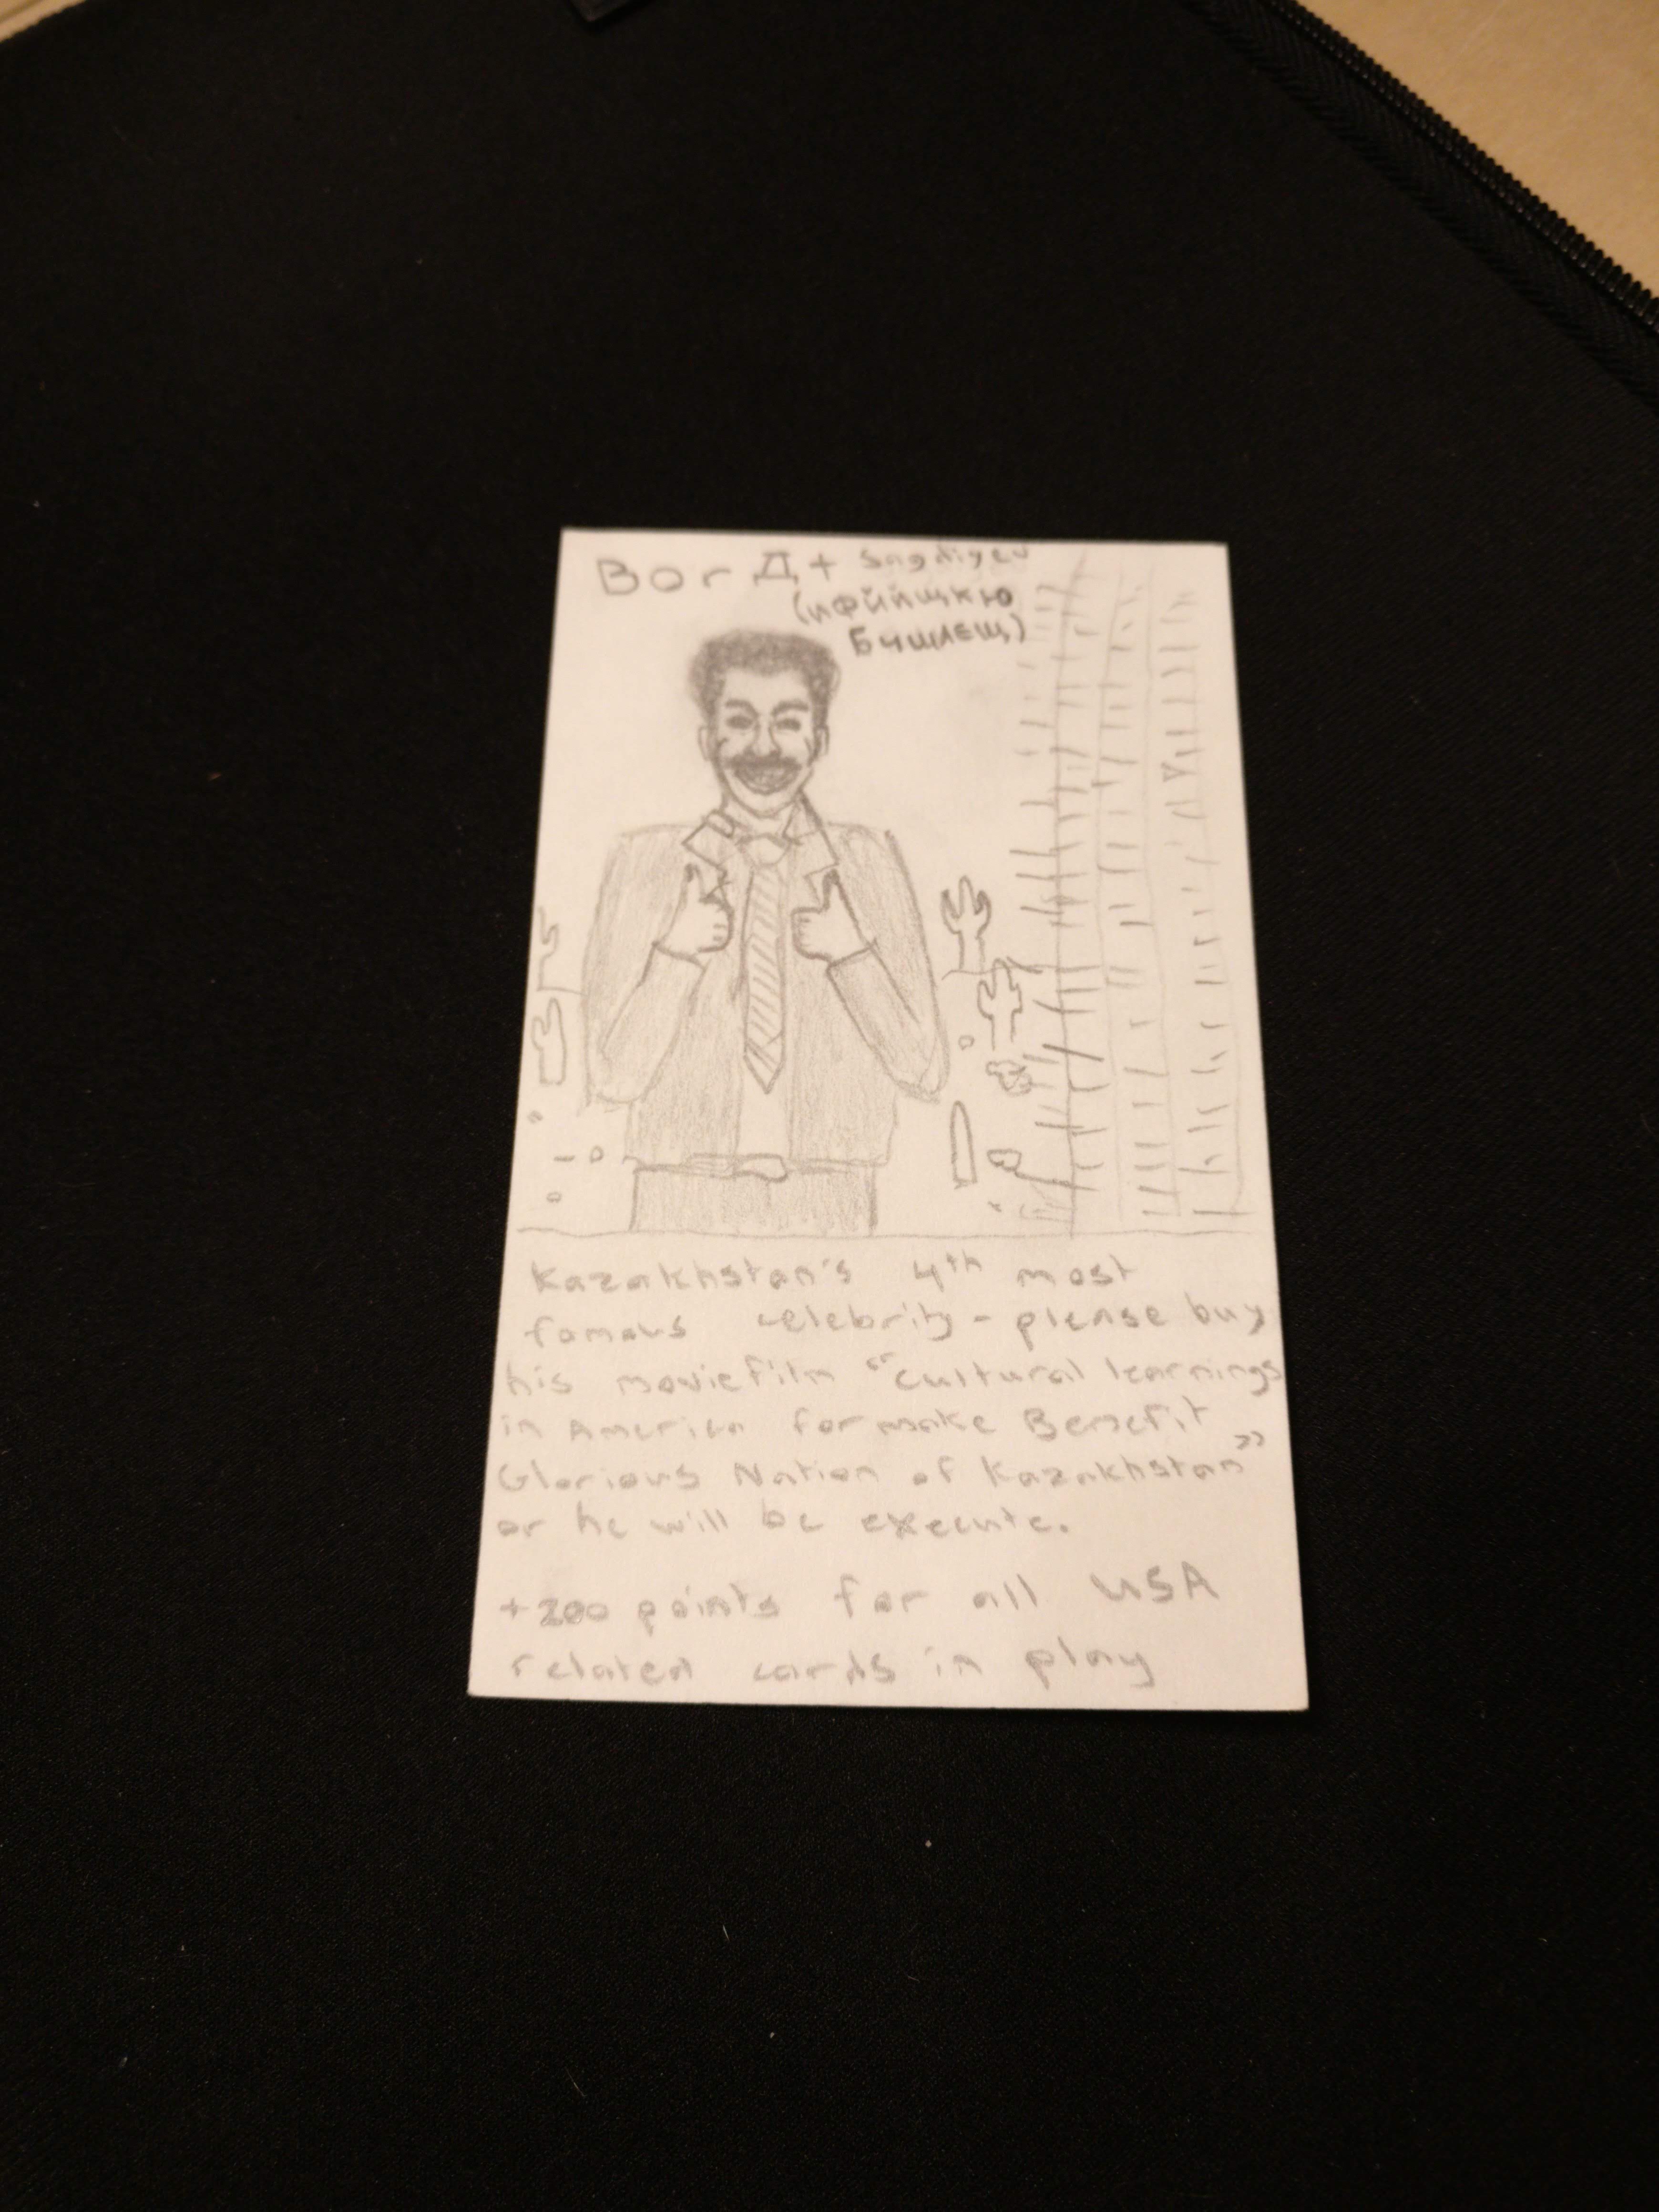 BorДt Sagdiyev
(ИФЙЙЩКЮ
БЧШЛЕЩ)
Kazakhstan's 4th most
famous celebrity - please buy
his moviefilm "cultural learnings
in America for make Benefit
Glorious Nation of Kazakhstan"
or he will be execute.
+200 points for all USA
related cards in play